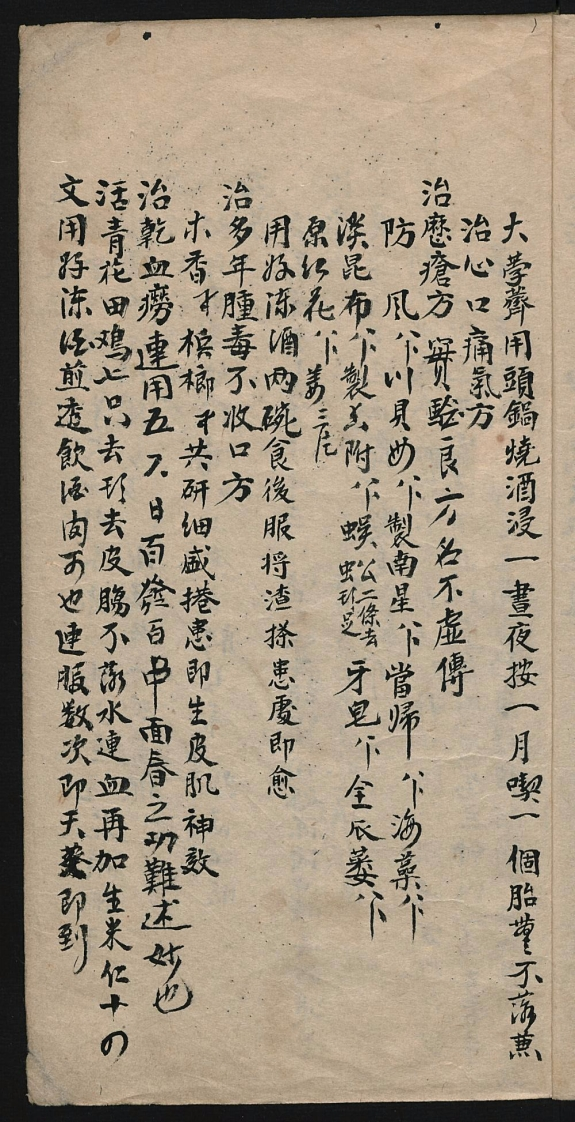 大荸薺用頭鍋燒酒浸一晝夜按一月喫一個胎萬不落兼
治心口痛氣方
治瘰瘡方 實驗良方名不虛傳
防風 川貝母 製南星 當歸 海藻
淡昆布 製香附 蜈蚣二條去頭足 牙皂 全瓜蔞
原紅花 姜三片
用好陳酒兩碗食後服將渣搽患處即愈
治多年腫毒不收口方
木香 檳榔 共研細盛捲患即生皮肌神效
治乾血癆連用五六日百發百中面春之功難述妙也
活青花田鷄七只去頭去皮腸不落水連血再加生米仁十
文用好陳酒煎透飲酒肉可也連服数次即天葵即到